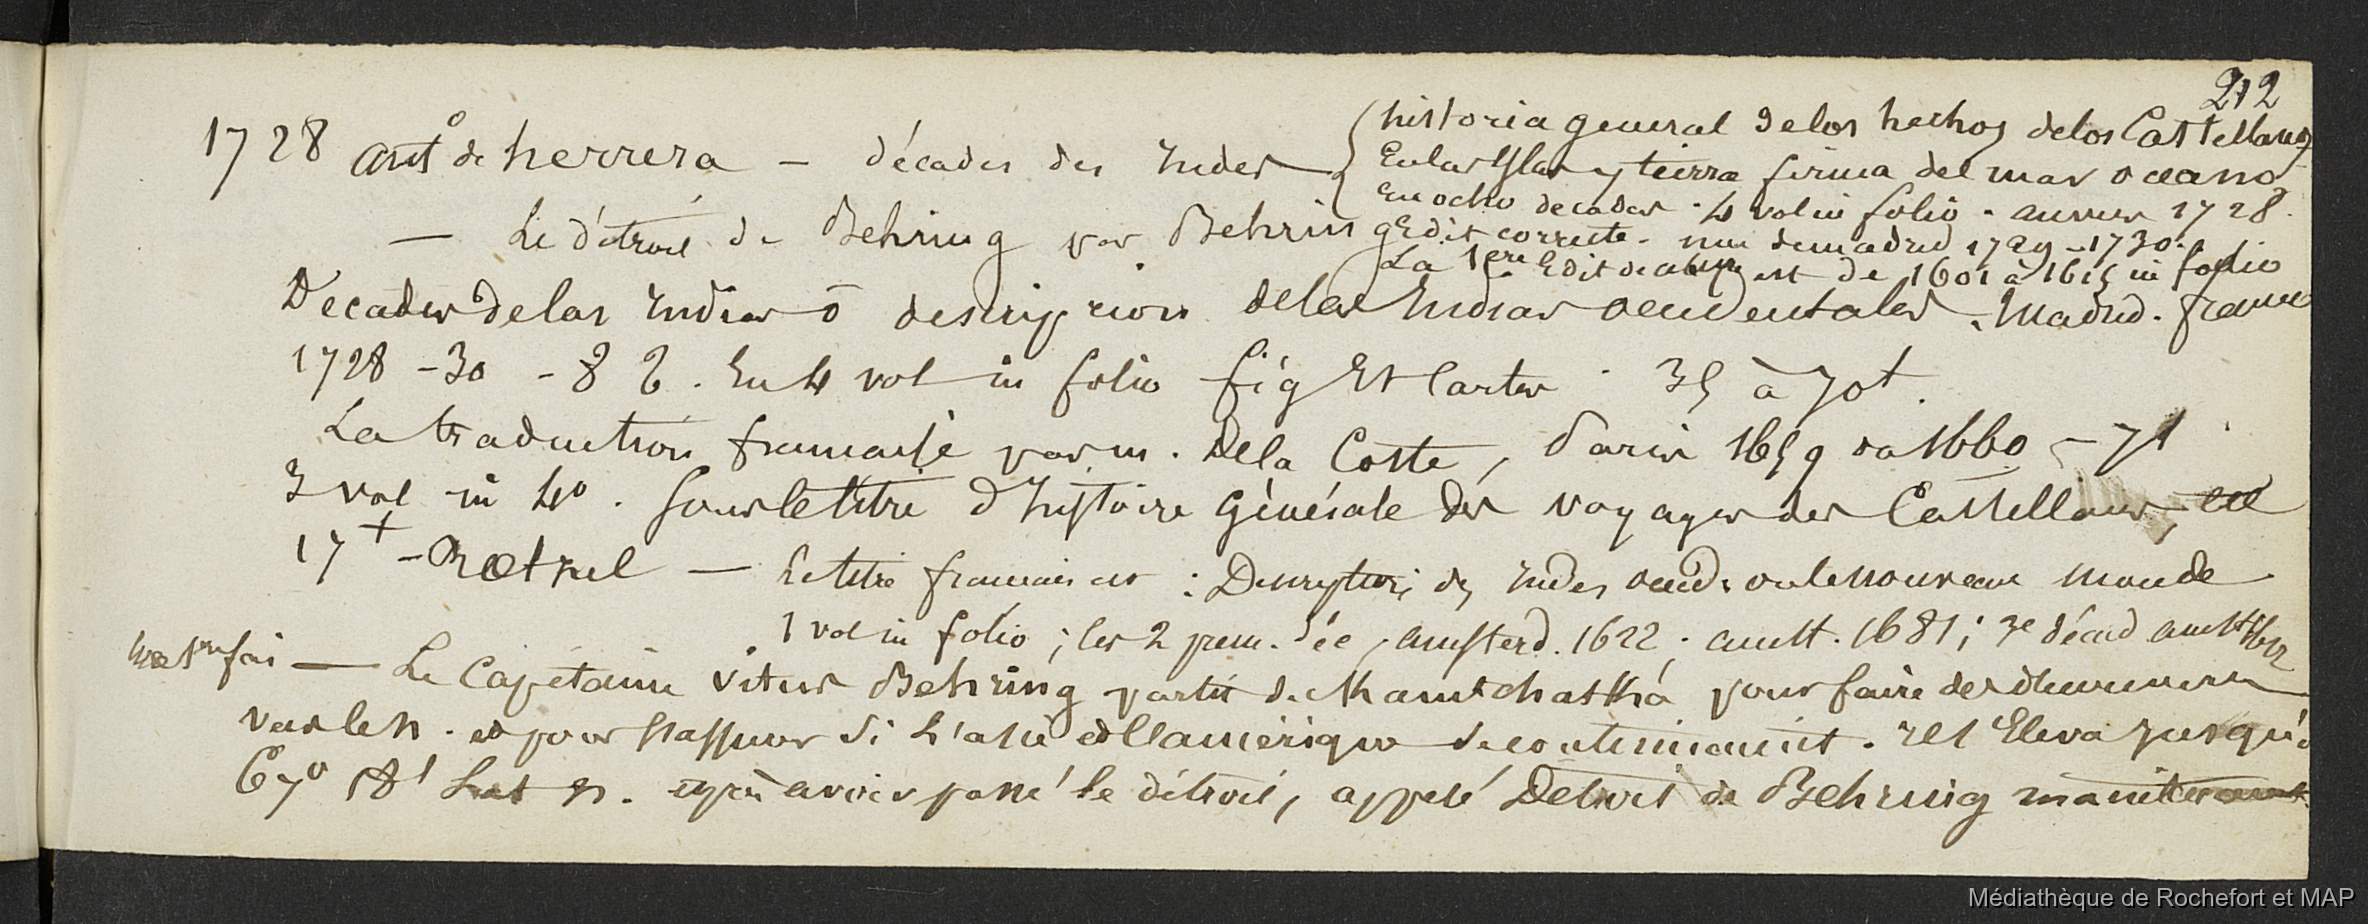 212
1728 ant° de herrera – décades des Indes – { historia general de los hechos delos Castellanos
En las Yslas y tierra firma del mar oceano
En ocho decadas . 4 vol in folio . anvers 1728.
– Le détroit de Behring par Behring
Edit correcte . de madrid 1729 – 1730.
La 1ere Edit est de 1601 à 1615 in folio
Decades delas Indias ó descripcion delas Indias occidentales . Madrid .
1728 – 30 – 8 . En 4 vol in folio fig Et Cartes . 35 à 70t.
La traduction francaise par m . Dela Coste , Paris 1659 1660 – 71
3 vol in 4° . sous le titre d'histoire générale des voyages des Castellans
17 – – Le titre francais est : Description des Indes occid. ou le nouveau monde
1 vol in folio ; les 2 prem. déc , amsterd. 1622 . amst . 1681 ; 3e décad
– Le Capitaine vitus Behring partit de Kamtchatka pour faire des
vers le n . et pour s'assurer si l'asie et l'amérique se conteminaient . il s'Eleva jusqu'à
67° 18' Lat n . après avoir passé le détroit , appelé Détroit de Behring maintenant.
Médiathèque de Rochefort et MAP